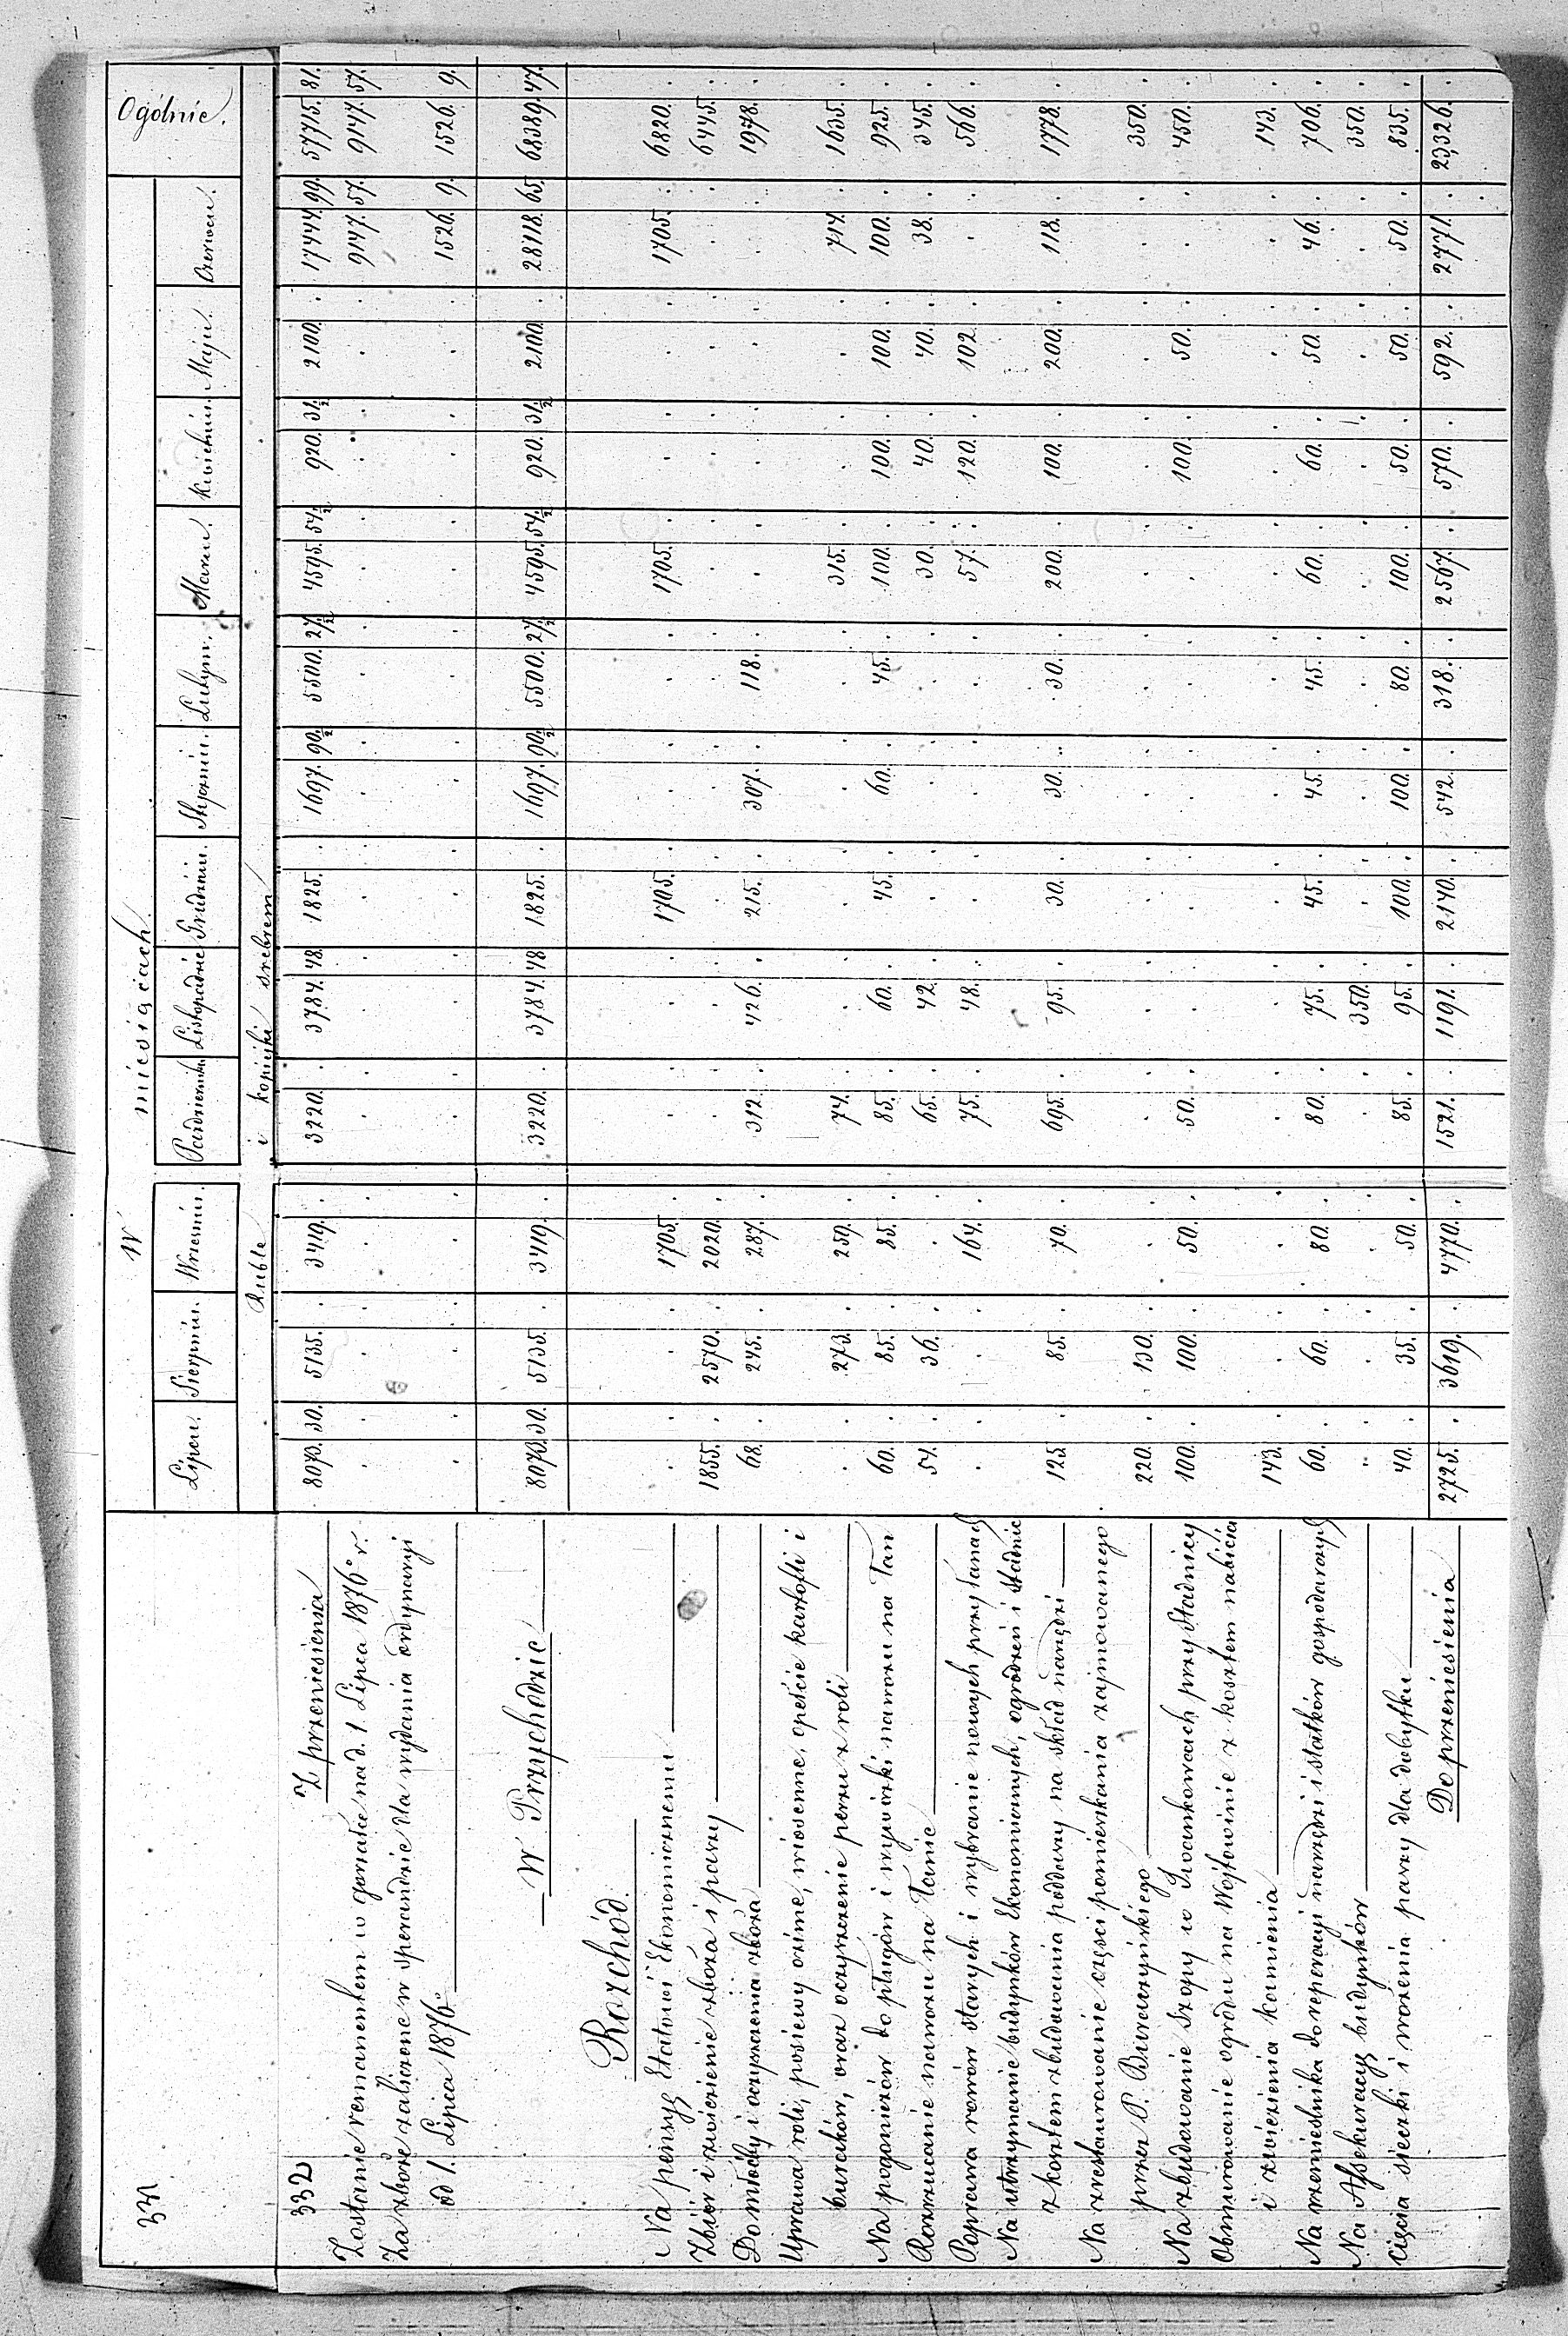 331
W miesiącach
Ogólnie.
Lipcu. Sierpniu. Wrześniu. Październiku Listopadzie Grudniu. Styczniu. Lutym. Marcu. Kwietniu. Maju. Czerwcu.
Ruble i kopiejki srebrem
332
Z przeniesienia 8073. 30. 5135. . 3419. . 3220. . 3784. 48. 1825. . 1697. 90½ 5500. 27½ 4595. 54½ 920. 31½ 2100. . 17444. 99. 57715. 81.
Zostanie remanentem w gorzałce na d. 1. Lipca 1876º r. 9147. 57. 9147. 57.
Za zboże zaliczone w sperandzie dla wydania ordynaryi
od 1. Lipca 1876º 1526. 9. 1526. 9.
W Przychodzie 8073. 30. 5135. . 3419. . 3220. . 3784. 48 1825. . 1697. 90½ 5500. 27½ 4595. 54½ 920. 31½ 2100. . 28118. 65. 68389. 47.
Rozchód.
Na pensyę Etatowi Ekonomicznemu 1705. 1705. 1705. 1705. 6820.
Zbiór i zwiezienie zboża i paszy 1855. 2570. 2020. 6445.
Do młócky i oczyszczenia zboża 68. 245. 287. 312. 426. 215. 307. 118. 1978.
Uprawa roli, posiewy ozime, wiosenne, opełcie kartofli i
buraków, oraz oczyszczenie perzu z roli 273. 259. 74. 315. 714. 1635.
Na poganiczów do pługów i wywózki nawozu na Łan 60. 85. 85. 85. 60. 45. 60. 45. 100. 100. 100. 100. 925.
Rozrzucanie nawozu na Łanie 54. 36. . 65. 42. 30. 40. 40. 38. 345.
Poprawa rowów starych i wybranie nowych przy Łanach 164. 75. 48. 57. 120. 102. 566.
Na utrzymanie budynków Ekonomicznych, ogrodzeń i Stadnic
z kosztem zbudowania poddaszy na skład narzędzi 125. 85. 70. 695. 95. 30. 30. 30. 200. 100. 200. 118. 1778.
Na zrestaurowanie części pomieszkania zajmowanego
przez P. 220. 130. 350.
Na zbudowanie Szopy w Iwankowcach przy Stadnicy 100. 100. 50. 50. 100. 50. 450.
Obmurowanie ogrodu na Wójtowinie z kosztem nabicia
i zwiezienia kamienia 143. 143.
Na rzemieślnika do reperacyi narzędzi i statków gospodarczych 60. 60. 80. 80. 75. 45. 45. 45. 60. 60. 50. 46. 706.
Na Assekuracyę budynków 350. 350.
Cięcia sieczki i wożenia paszy dla dobytku 40. 35. 50. 85. 95. 100. 100. 80. 100. 50. 50. 50. 835.
Do przeniesienia 2725. 3619. 4770. 1521. 1191. 2140. 542. 318. 2567. 570. 592. 2771. 23,326.